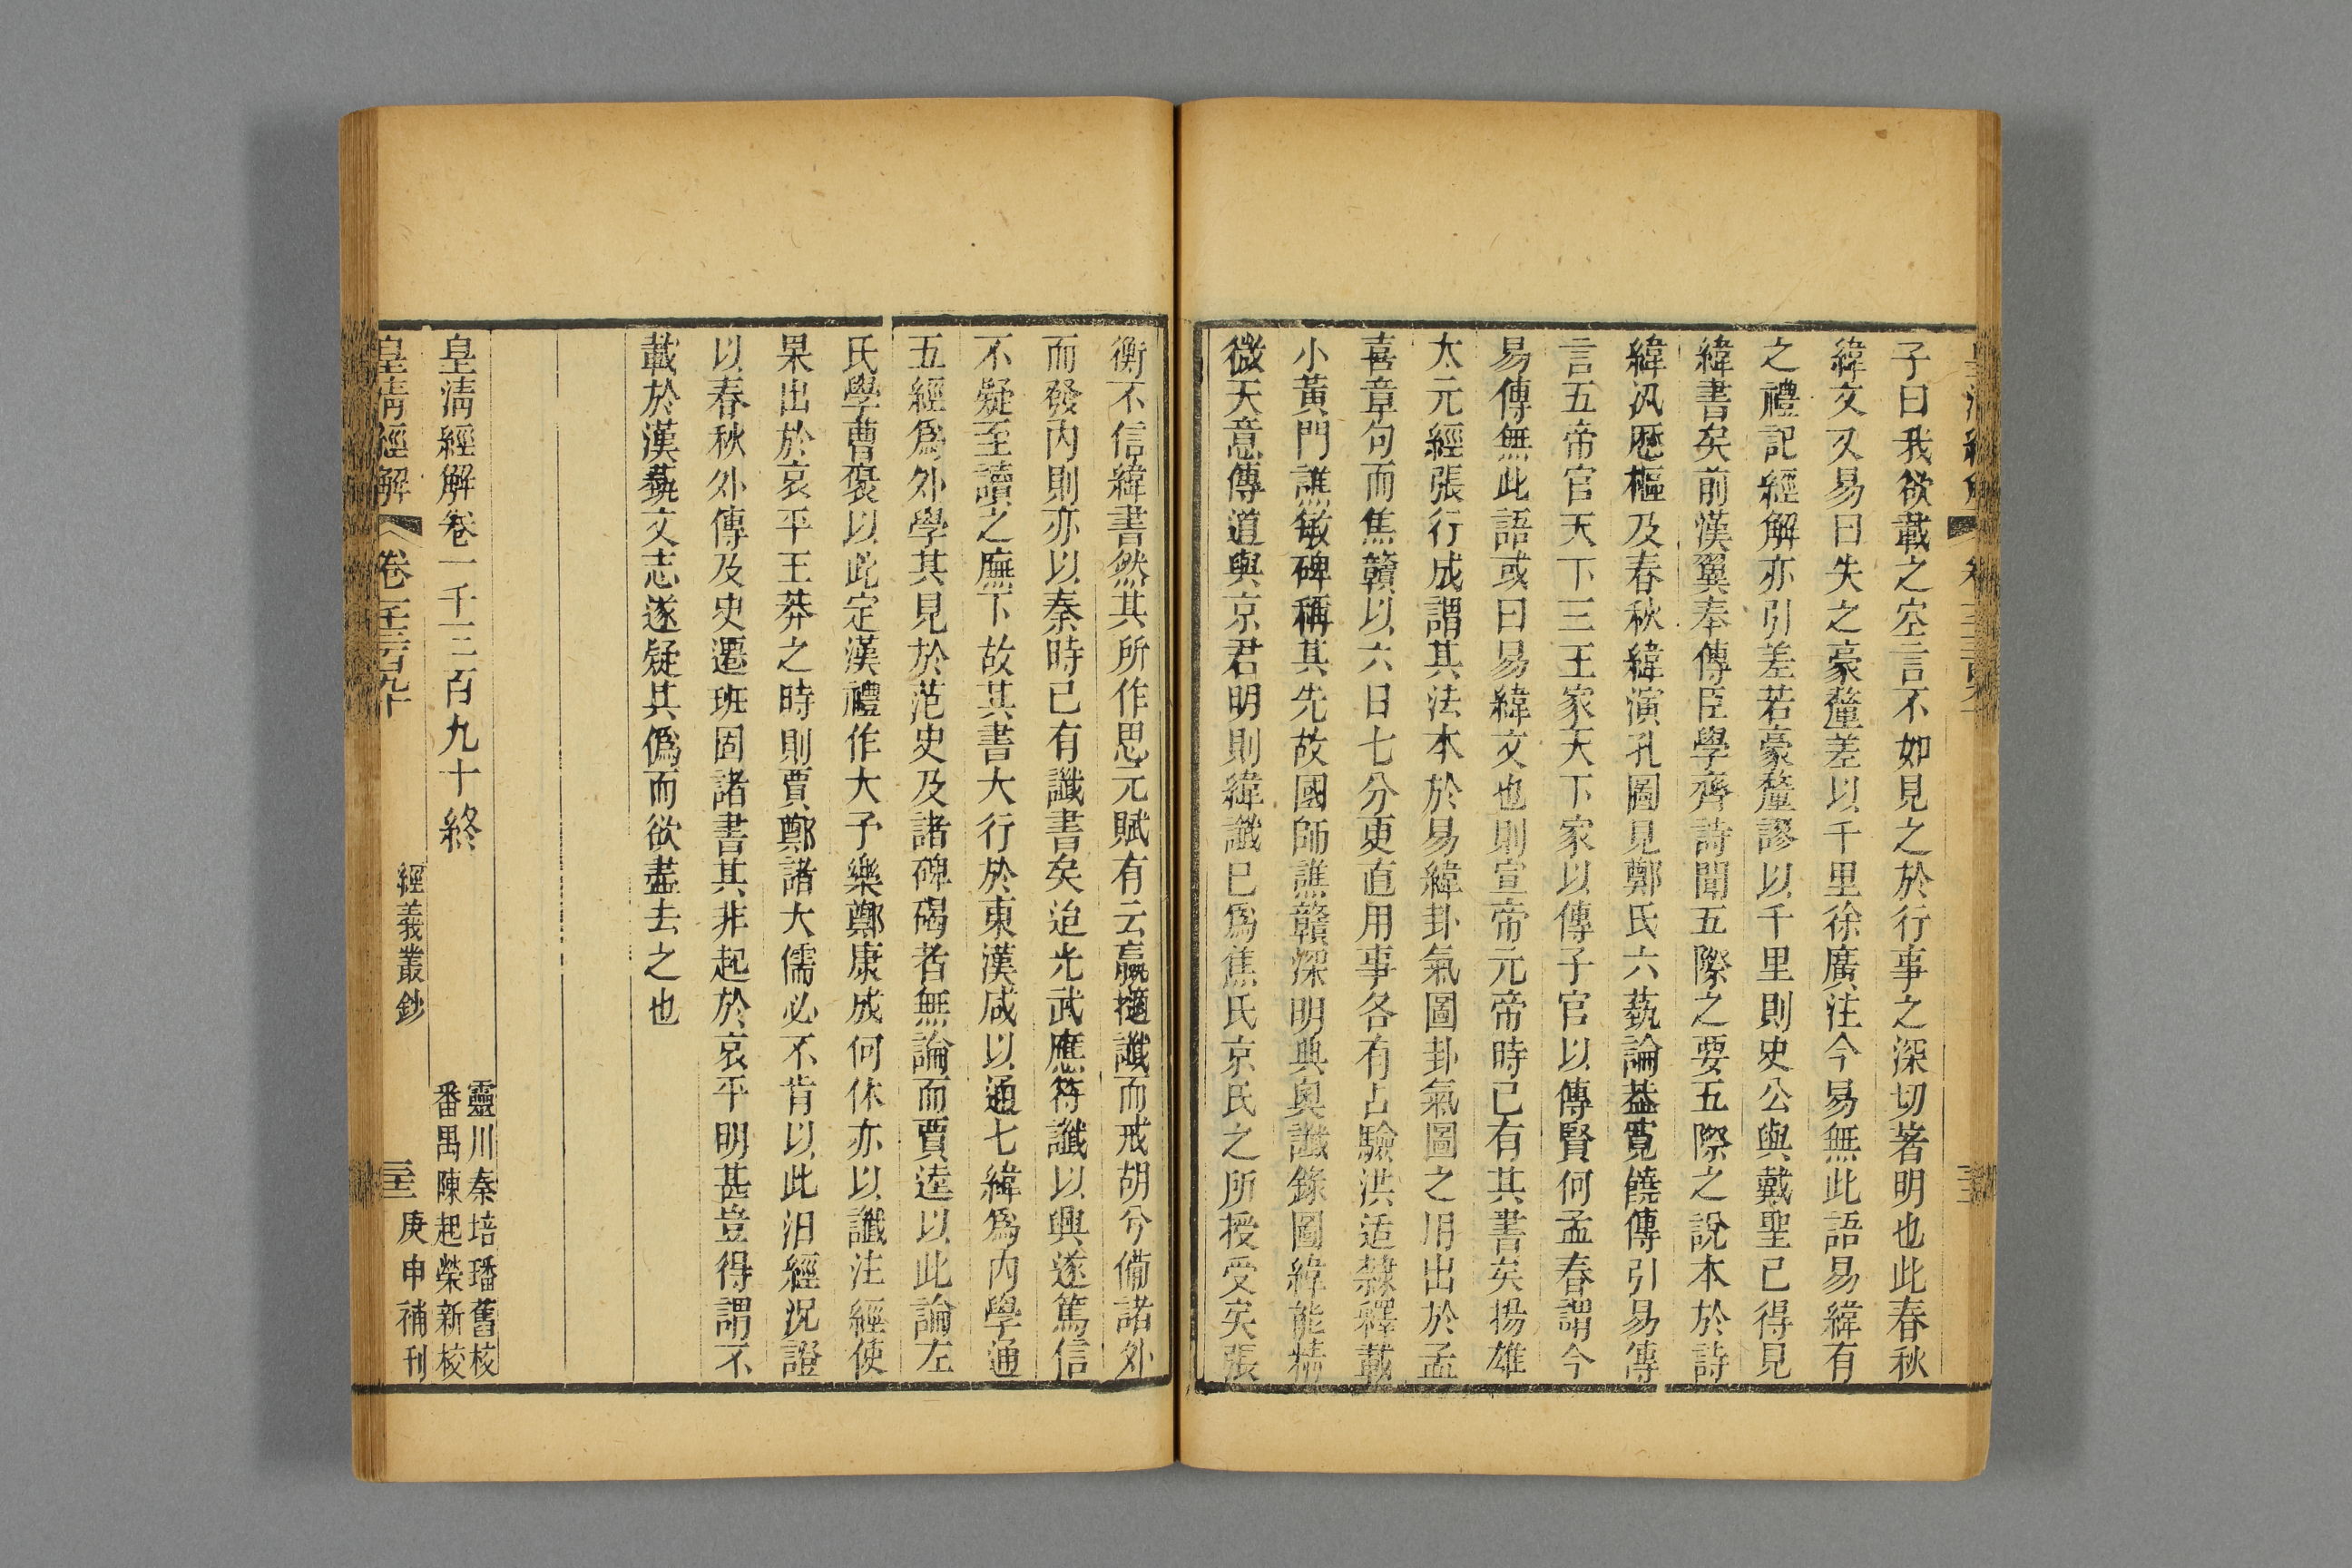 子曰我欲載之空言不如見之於行事之深切著明也此春秋
緯文又易曰失之豪釐差以千里徐廣注今易無此語易緯有
之禮記經解亦引差若豪釐謬以千里則史公與戴聖已得見
緯書矣前漢翼奉傳臣學齊詩聞五際之要五際之說本於詩
緯汎歷樞及春秋緯演孔圖見鄭氏六藝論蓋寬饒傳引易傳
言五帝官天下三王家天下家以傳子官以傳賢何孟春謂今
易傳無此語或曰易緯文也則宣帝元帝時已有其書矣揚雄
太元經張行成謂其法本於易緯卦氣圖卦氣圖之用出於孟
喜章句而焦贛以六日七分更直用事各有占驗洪适隸釋載
小黃門譙敏碑稱其先故國師譙贛深明典奧讖錄圖緯能精
微天意傳道與京君明則緯讖已爲焦氏京氏之所授受矣張
衡不信緯書然其所作思元賦有云嬴擿讖而戒胡兮備諸外
而發內則亦以秦時已有讖書矣迨光武應符讖以興遂篤信
不疑至讀之廡下故其書大行於東漢咸以通七緯爲內學通
五經爲外學其見於范史及諸碑碣者無論而賈逵以此論左
氏學曹褒以此定漢禮作大予樂鄭康成何休亦以讖注經使
果出於哀平王莽之時則賈鄭諸大儒必不肯以此汨經況證
以春秋外傳及史遷班固諸書其非起於哀平明甚豈得謂不
載於漢藝文志遂疑其僞而欲盡去之也
皇淸經解卷一千三百九十終
靈川秦培璠舊校
番禺陳起榮新校
皇淸經解
卷一千三百九十
經義叢鈔
庚申補刊